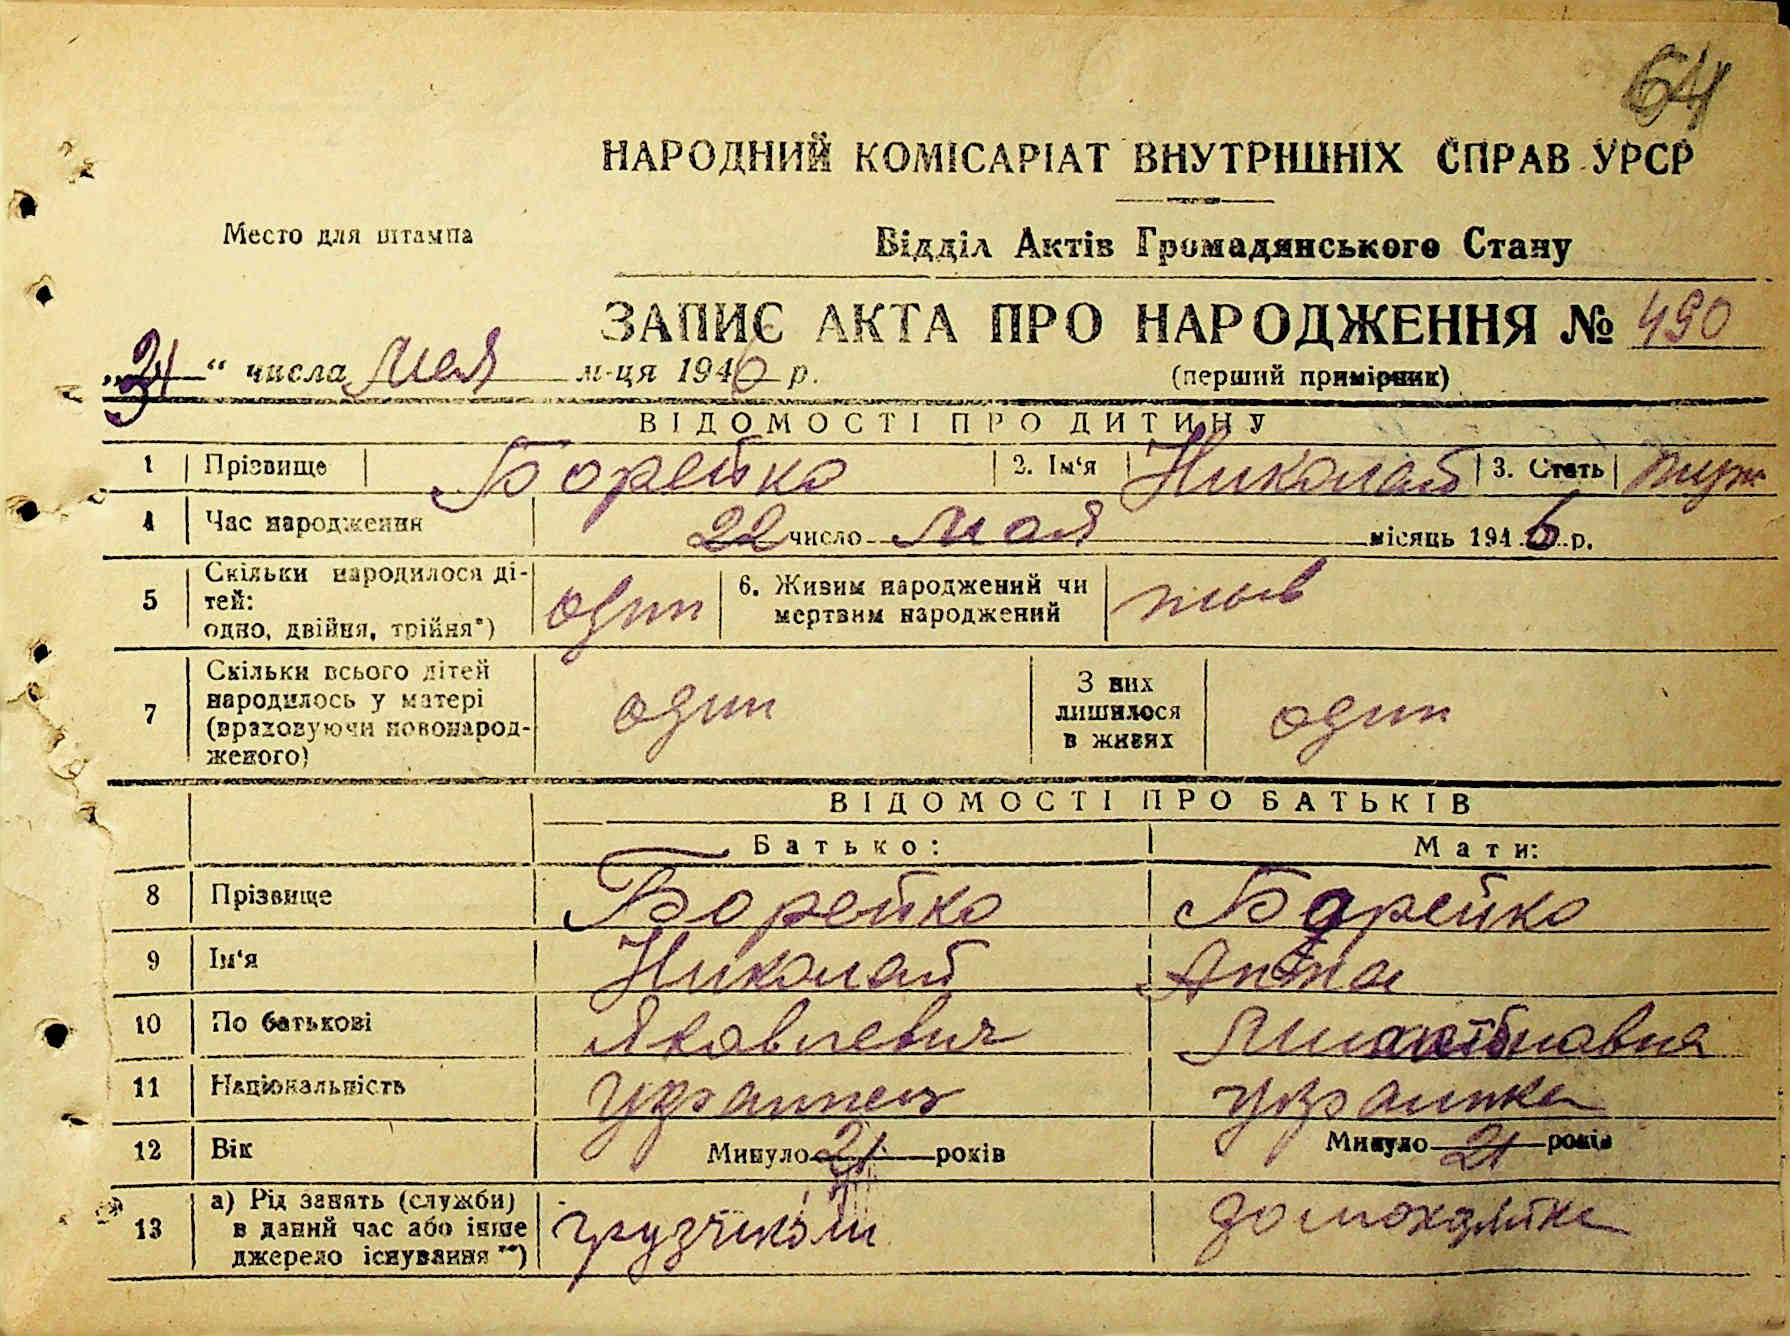 64
НАРОДНИЙ КОМІСАРІАТ ВНУТРІШНІХ СПРАВ УРСР
Место для штампа
Відділ Актів Громадянського Стану
ЗАПИС АКТА ПРО НАРОДЖЕННЯ № 490
„31“ числа мая м-ця 1946 р.
(перший примірник)
ВІДОМОСТІ ПРО ДИТИНУ
1 Прізвище Борейко 2. Ім‘я Николай 3. Стать муж
4 Час народження 22 число мая місяць 1946 р.
5 Скільки народилося ді-
тей:
одно, двійня, трійня*) один 6. Живим народжений чи
мертвим народжений жив
7 Скільки всього дітей
народилось у матері
(враховуючи новонарод-
женого) один З них
лишилося
в живих один
ВІДОМОСТІ ПРО БАТЬКІВ
Батько: Мати:
8 Прізвище Борейко Борейко
9 Ім‘я Николай Анна
10 По батькові Яковлевич
11 Національність украинец украинка
12 Вік Минуло 21 років Минуло 21 років
13 а) Рід занять (служби)
в даний час або інше
джерело існування **) грузчиком домохозяйка